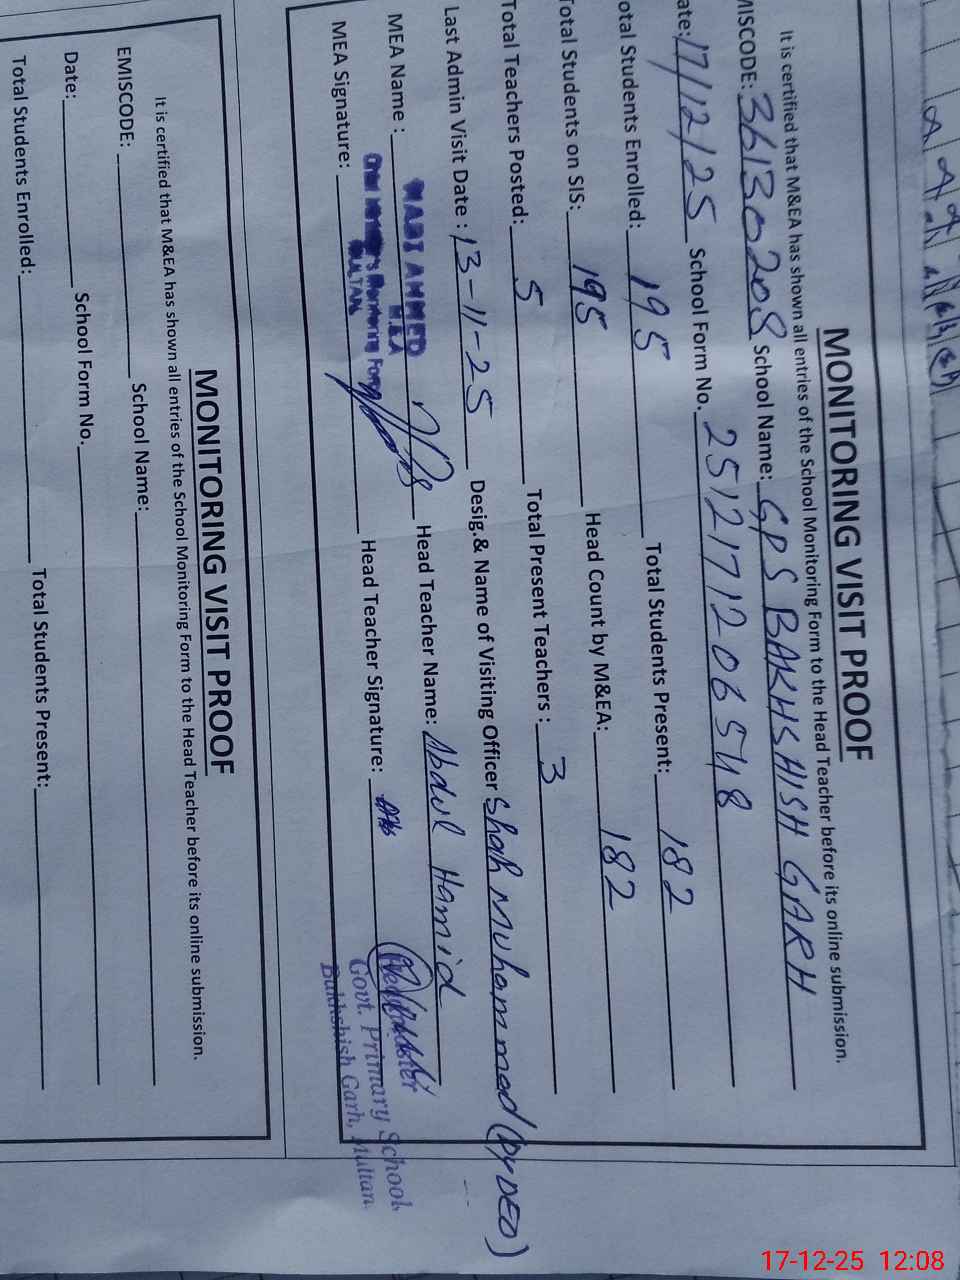 MONITORING VISIT PROOF
It is certified that M&EA has shown all entries of the School Monitoring Form to the Head Teacher before its online submission.
MISCODE: 36130208 School Name: GPS BAKHSHISH GARH
ate: 17/12/25 School Form No. 251217120654 8
otal Students Enrolled: 195 Total Students Present: 182
Total Students on SIS: 195 Head Count by M&EA: 182
Total Teachers Posted: 5 Total Present Teachers : 3
Last Admin Visit Date : 13-11-25 Desig.& Name of Visiting Officer Shah Muhammad (Dy DEO)
MEA Name : HADI AHMED Head Teacher Name: Abdul Hamid
M.&A
MEA Signature: Chief Monitoring Force Head Teacher Signature:
MULTAN
Headmaster
Govt. Primary School
Bukhshish Garh, Multan
MONITORING VISIT PROOF
It is certified that M&EA has shown all entries of the School Monitoring Form to the Head Teacher before its online submission.
EMISCODE: School Name:
Date: School Form No.
Total Students Enrolled: Total Students Present:
17-12-25 12:08